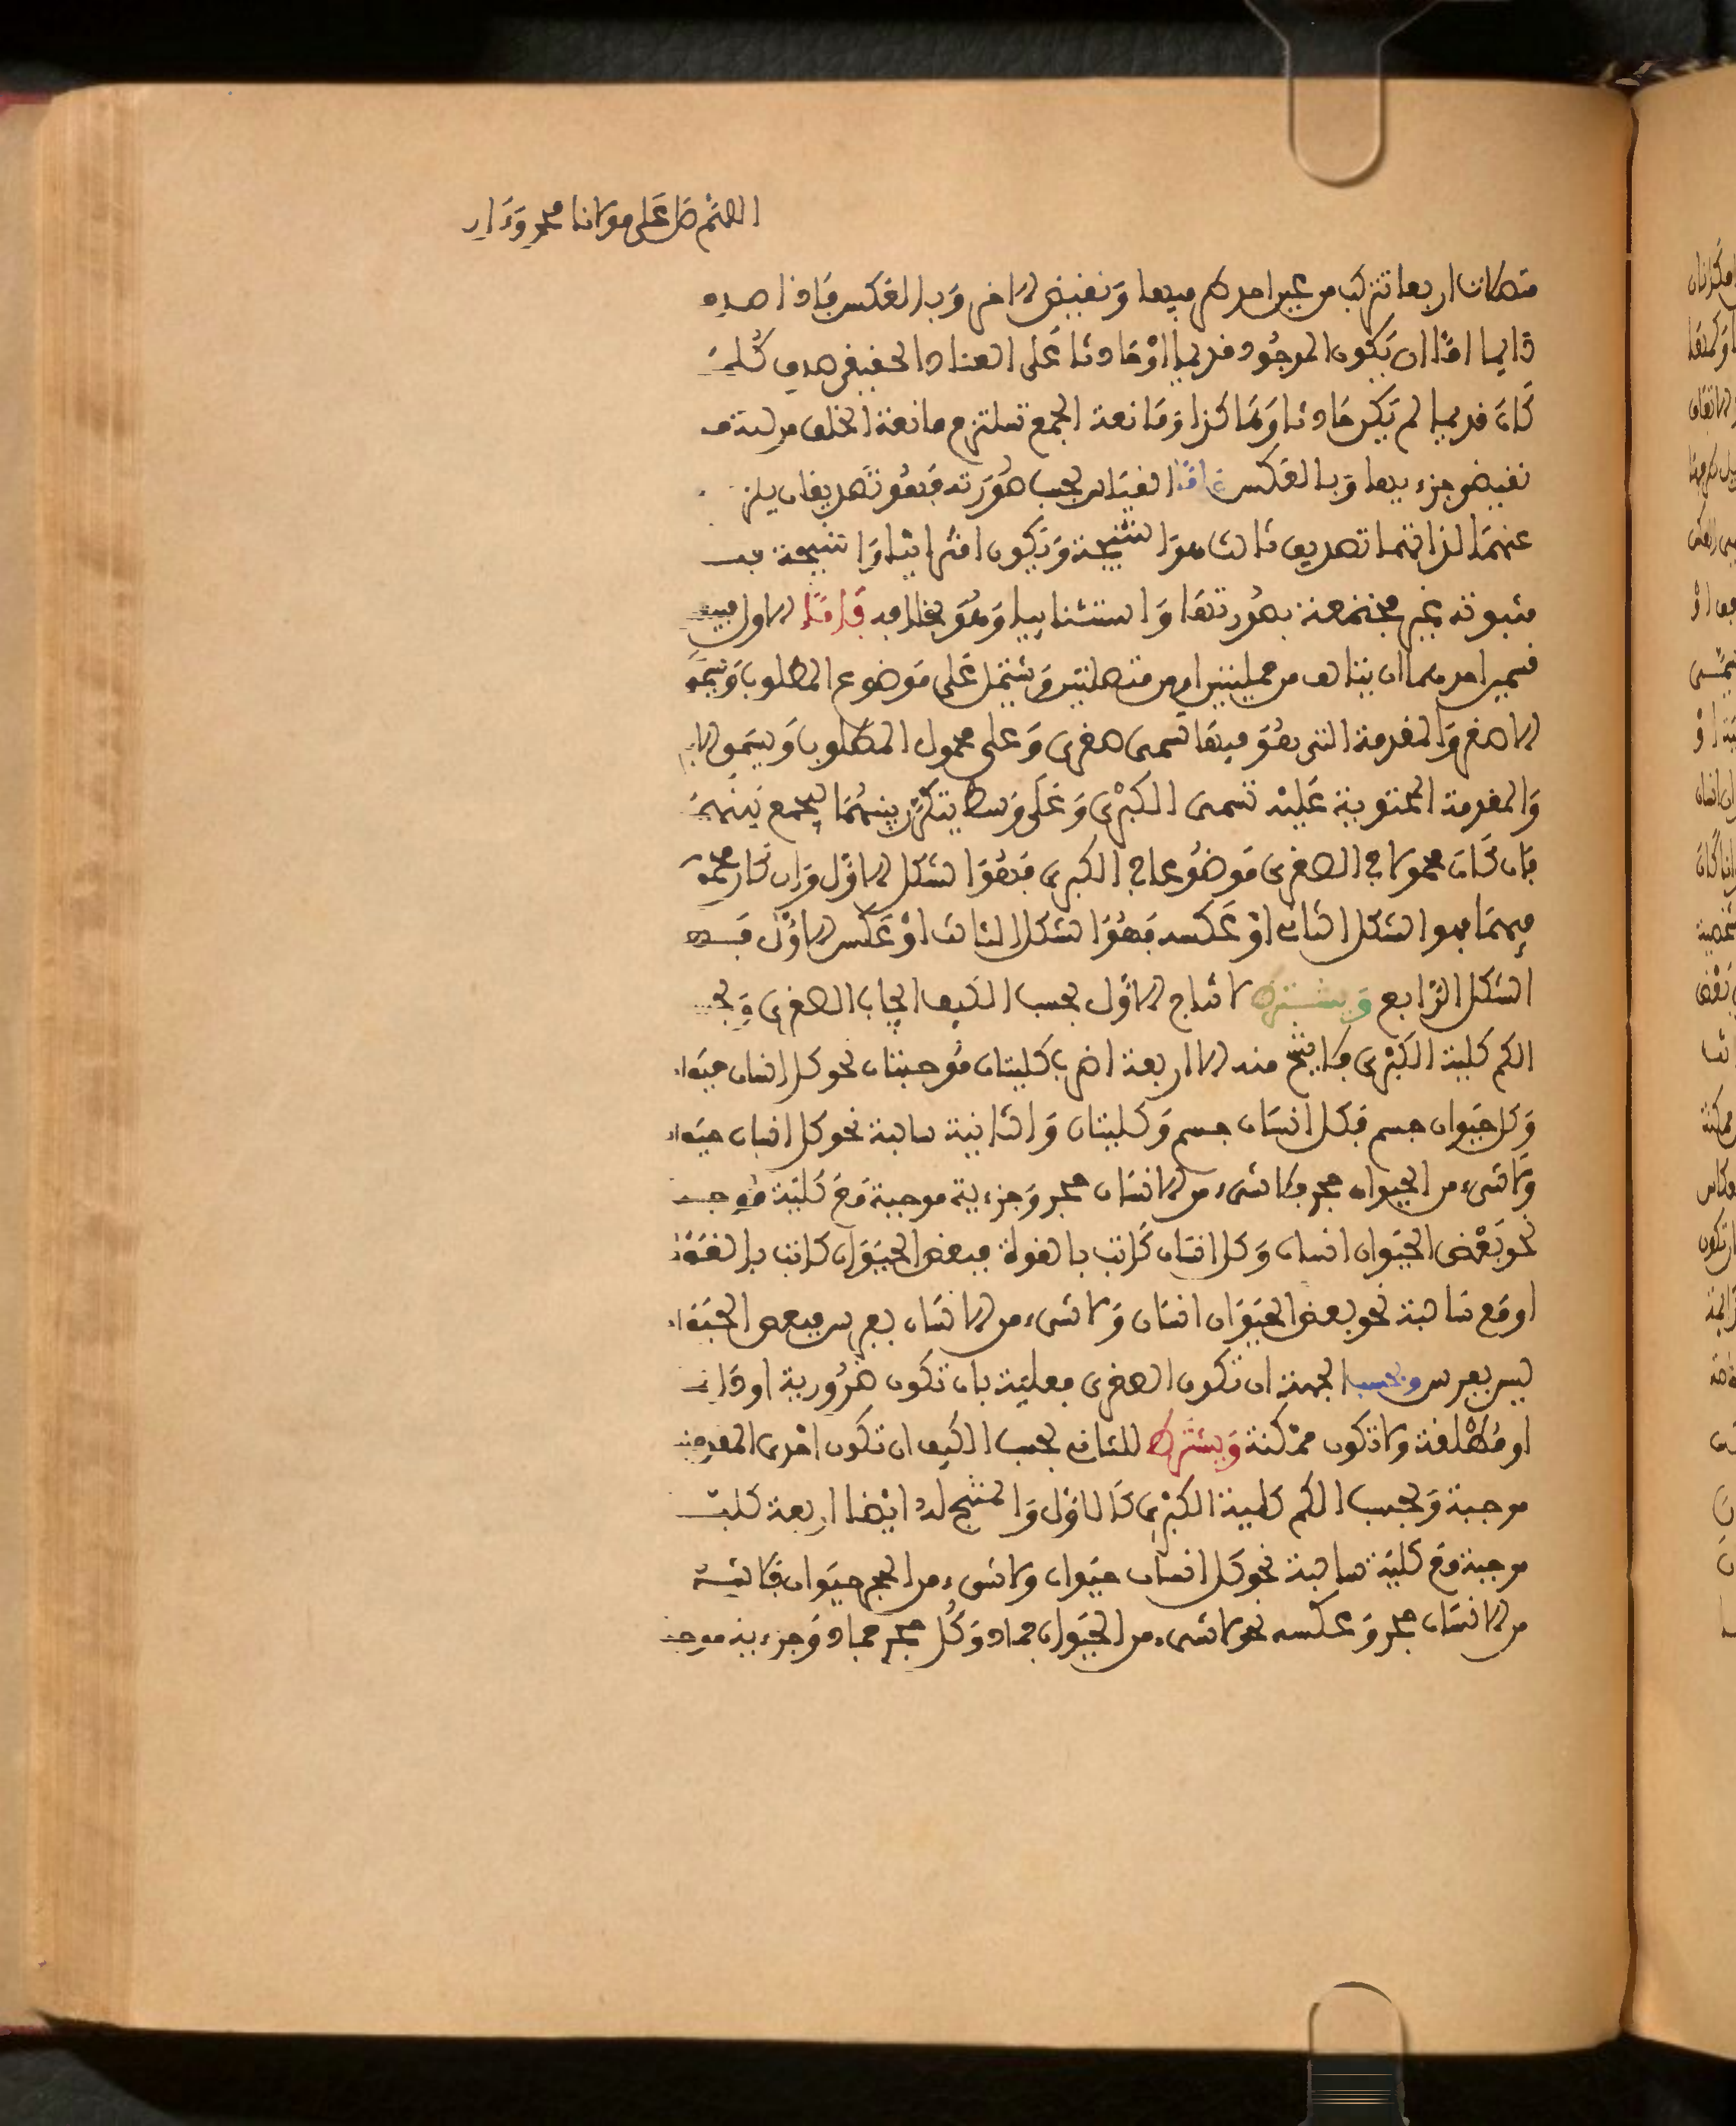 اللهم صل على مولانا محمد وءال
متصلات اربعا تتركب من عين احد طرفيها ونقيض الاخر وبالعكس فاذا صدق
دايما اما ان يكون الموجود قديما او حادثا على العناد الحقيقي صدق كلما
كان قديما لم يكن حادثا وهاكذا ومانعة الجمع تستلزم مانعة الخلو من
نقيض جزءيها وبالعكس واما القياس بحسب صورته فهو تصديقان يلزم
عنهما لذاتهما تصديق ثالث هو النتيجة ويكون اقترانيا والنتيجة فيه
مثبوتة غير مجتمعة بصورتها واستثناييا وهو بخلافه فاما الاول
فسمين احدهما ان يتالف من حمليتين او من متصلتين ويشتمل على موضوع المطلوب ويسمى
الاصغر والمقدمة التي هو فيها تسمى صغرى وعلى محمول المطلوب ويسمى الاكبر
والمقدمة المحتوية عليه تسمى الكبرى وعلى وسط يتكرر بينهما ليجمع بينهما
فان كان محمولا في الصغرى موضوعا في الكبرى فهو الشكل الاول وان كان محمولا
فيهما فهو الشكل الثاني او عكسه فهو الشكل الثالث او عكس الاول فهو
الشكل الرابع ويشترط لانتاج الاول بحسب الكيف ايجاب الصغرى وبحسب
الكم كلية الكبرى فلا ينتج منه الا اربعة اضرب كليتان موجبتان نحو كل انسان حيوان
وكل حيوان جسم فكل انسان جسم وكليتان والثانية سالبة نحو كل انسان حيوان
ولا شيء من الحيوان حجر فلا شيء من الانسان حجر وجزءية موجبة مع كلية موجبة
نحو بعض الحيوان انسان وكل انسان كاتب بالقوة فبعض الحيوان كاتب بالقوة
او مع سالبة نحو بعض الحيوان انسان ولا شيء من الانسان بفرس فبعض الحيوان
ليس بفرس وبحسب الجهة ان تكون الصغرى فعلية بان تكون ضرورية او دايمة
او مطلقة ولا تكون ممكنة ويشترط للثاني بحسب الكيف ان تكون احدى المقدمتين
موجبة وبحسب الكم كلية الكبرى كالاول والمنتج له ايضا اربعة كلية
موجبة مع كلية سالبة نحو كل انسان حيوان ولا شيء من الحجر حيوان فلا شيء
من الانسان حجر وعكسه نحو لا شيء من الحيوان جماد وكل حجر جماد وجزءية موجبة